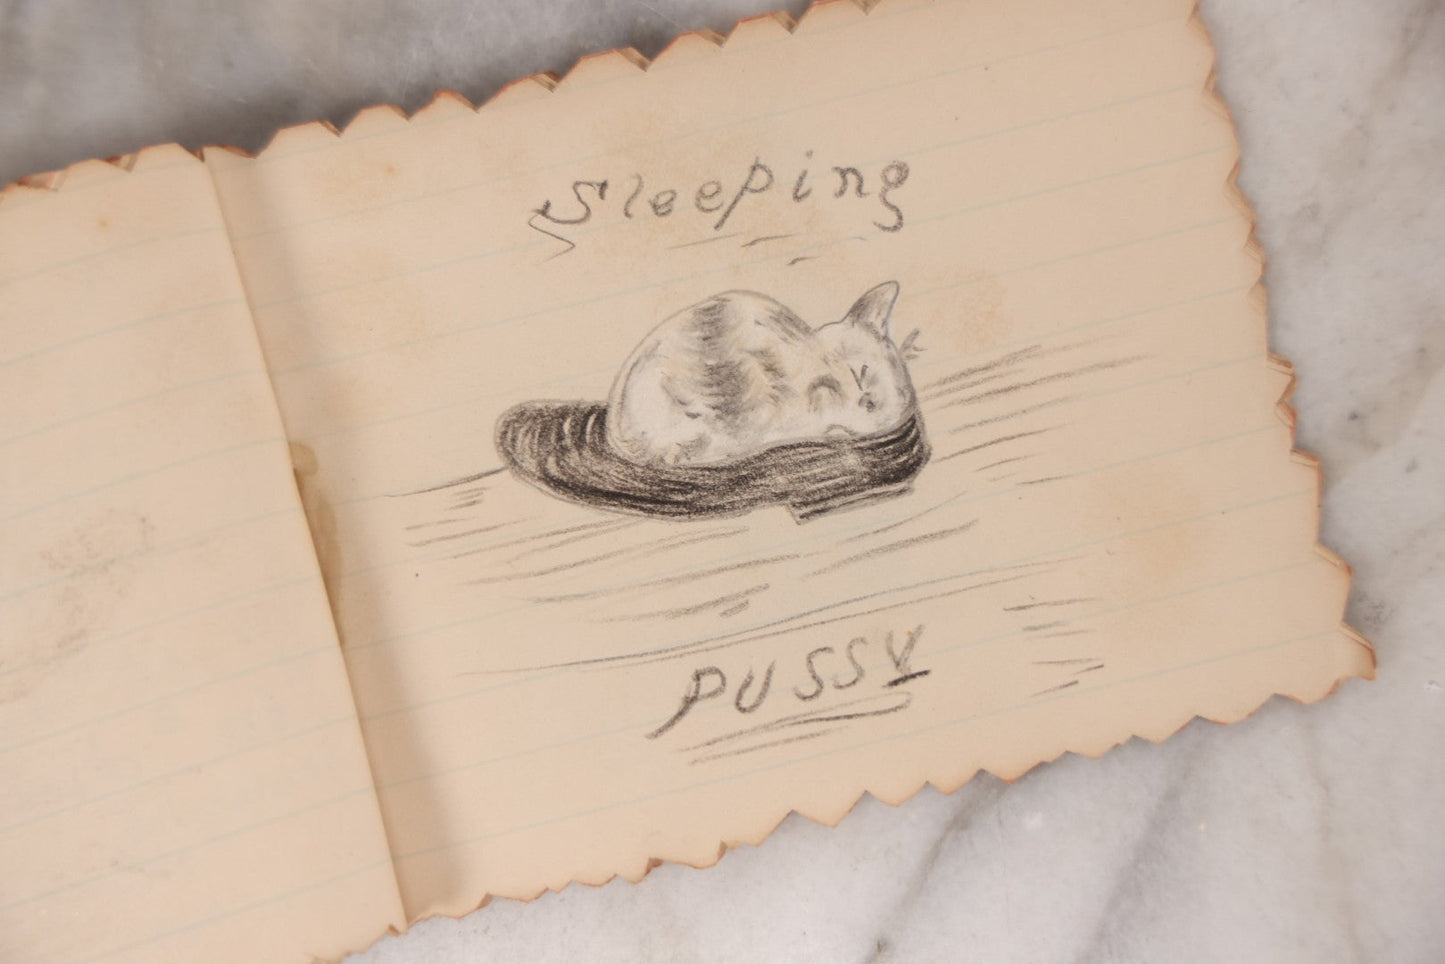 Sleeping
PUSSY